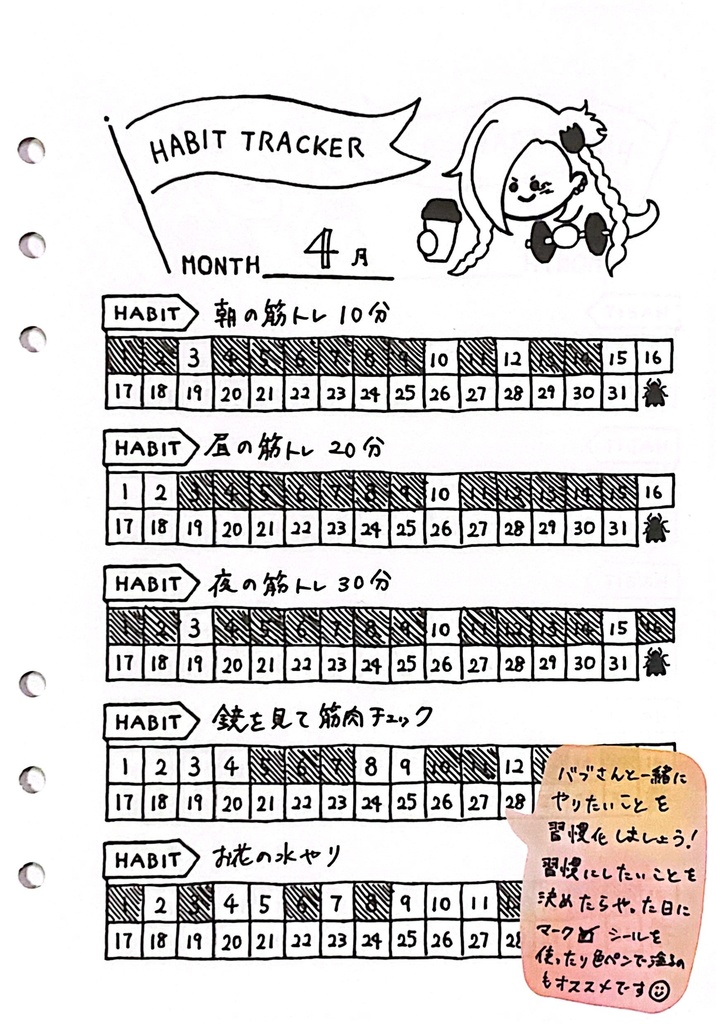 HABIT TRACKER
MONTH 4月
HABIT 朝の筋トレ 10分
1 2 3 4 5 6 7 8 9 10 11 12 13 14 15 16
17 18 19 20 21 22 23 24 25 26 27 28 29 30 31
HABIT 昼の筋トレ 20分
1 2 3 4 5 6 7 8 9 10 11 12 13 14 15 16
17 18 19 20 21 22 23 24 25 26 27 28 29 30 31
HABIT 夜の筋トレ 30分
1 2 3 4 5 6 7 8 9 10 11 12 13 14 15 16
17 18 19 20 21 22 23 24 25 26 27 28 29 30 31
HABIT 鏡を見て筋肉チェック
1 2 3 4 5 6 7 8 9 10 11 12
17 18 19 20 21 22 23 24 25 26 27 28
HABIT お花の水やり
1 2 3 4 5 6 7 8 9 10 11
17 18 19 20 21 22 23 24 25 26 27 28
バブさんと一緒に
やりたいことを
習慣化しましょう!
習慣にしたいことを
決めたらやった日に
マーク シールを
使ったり色ペンで塗るの
もオススメです